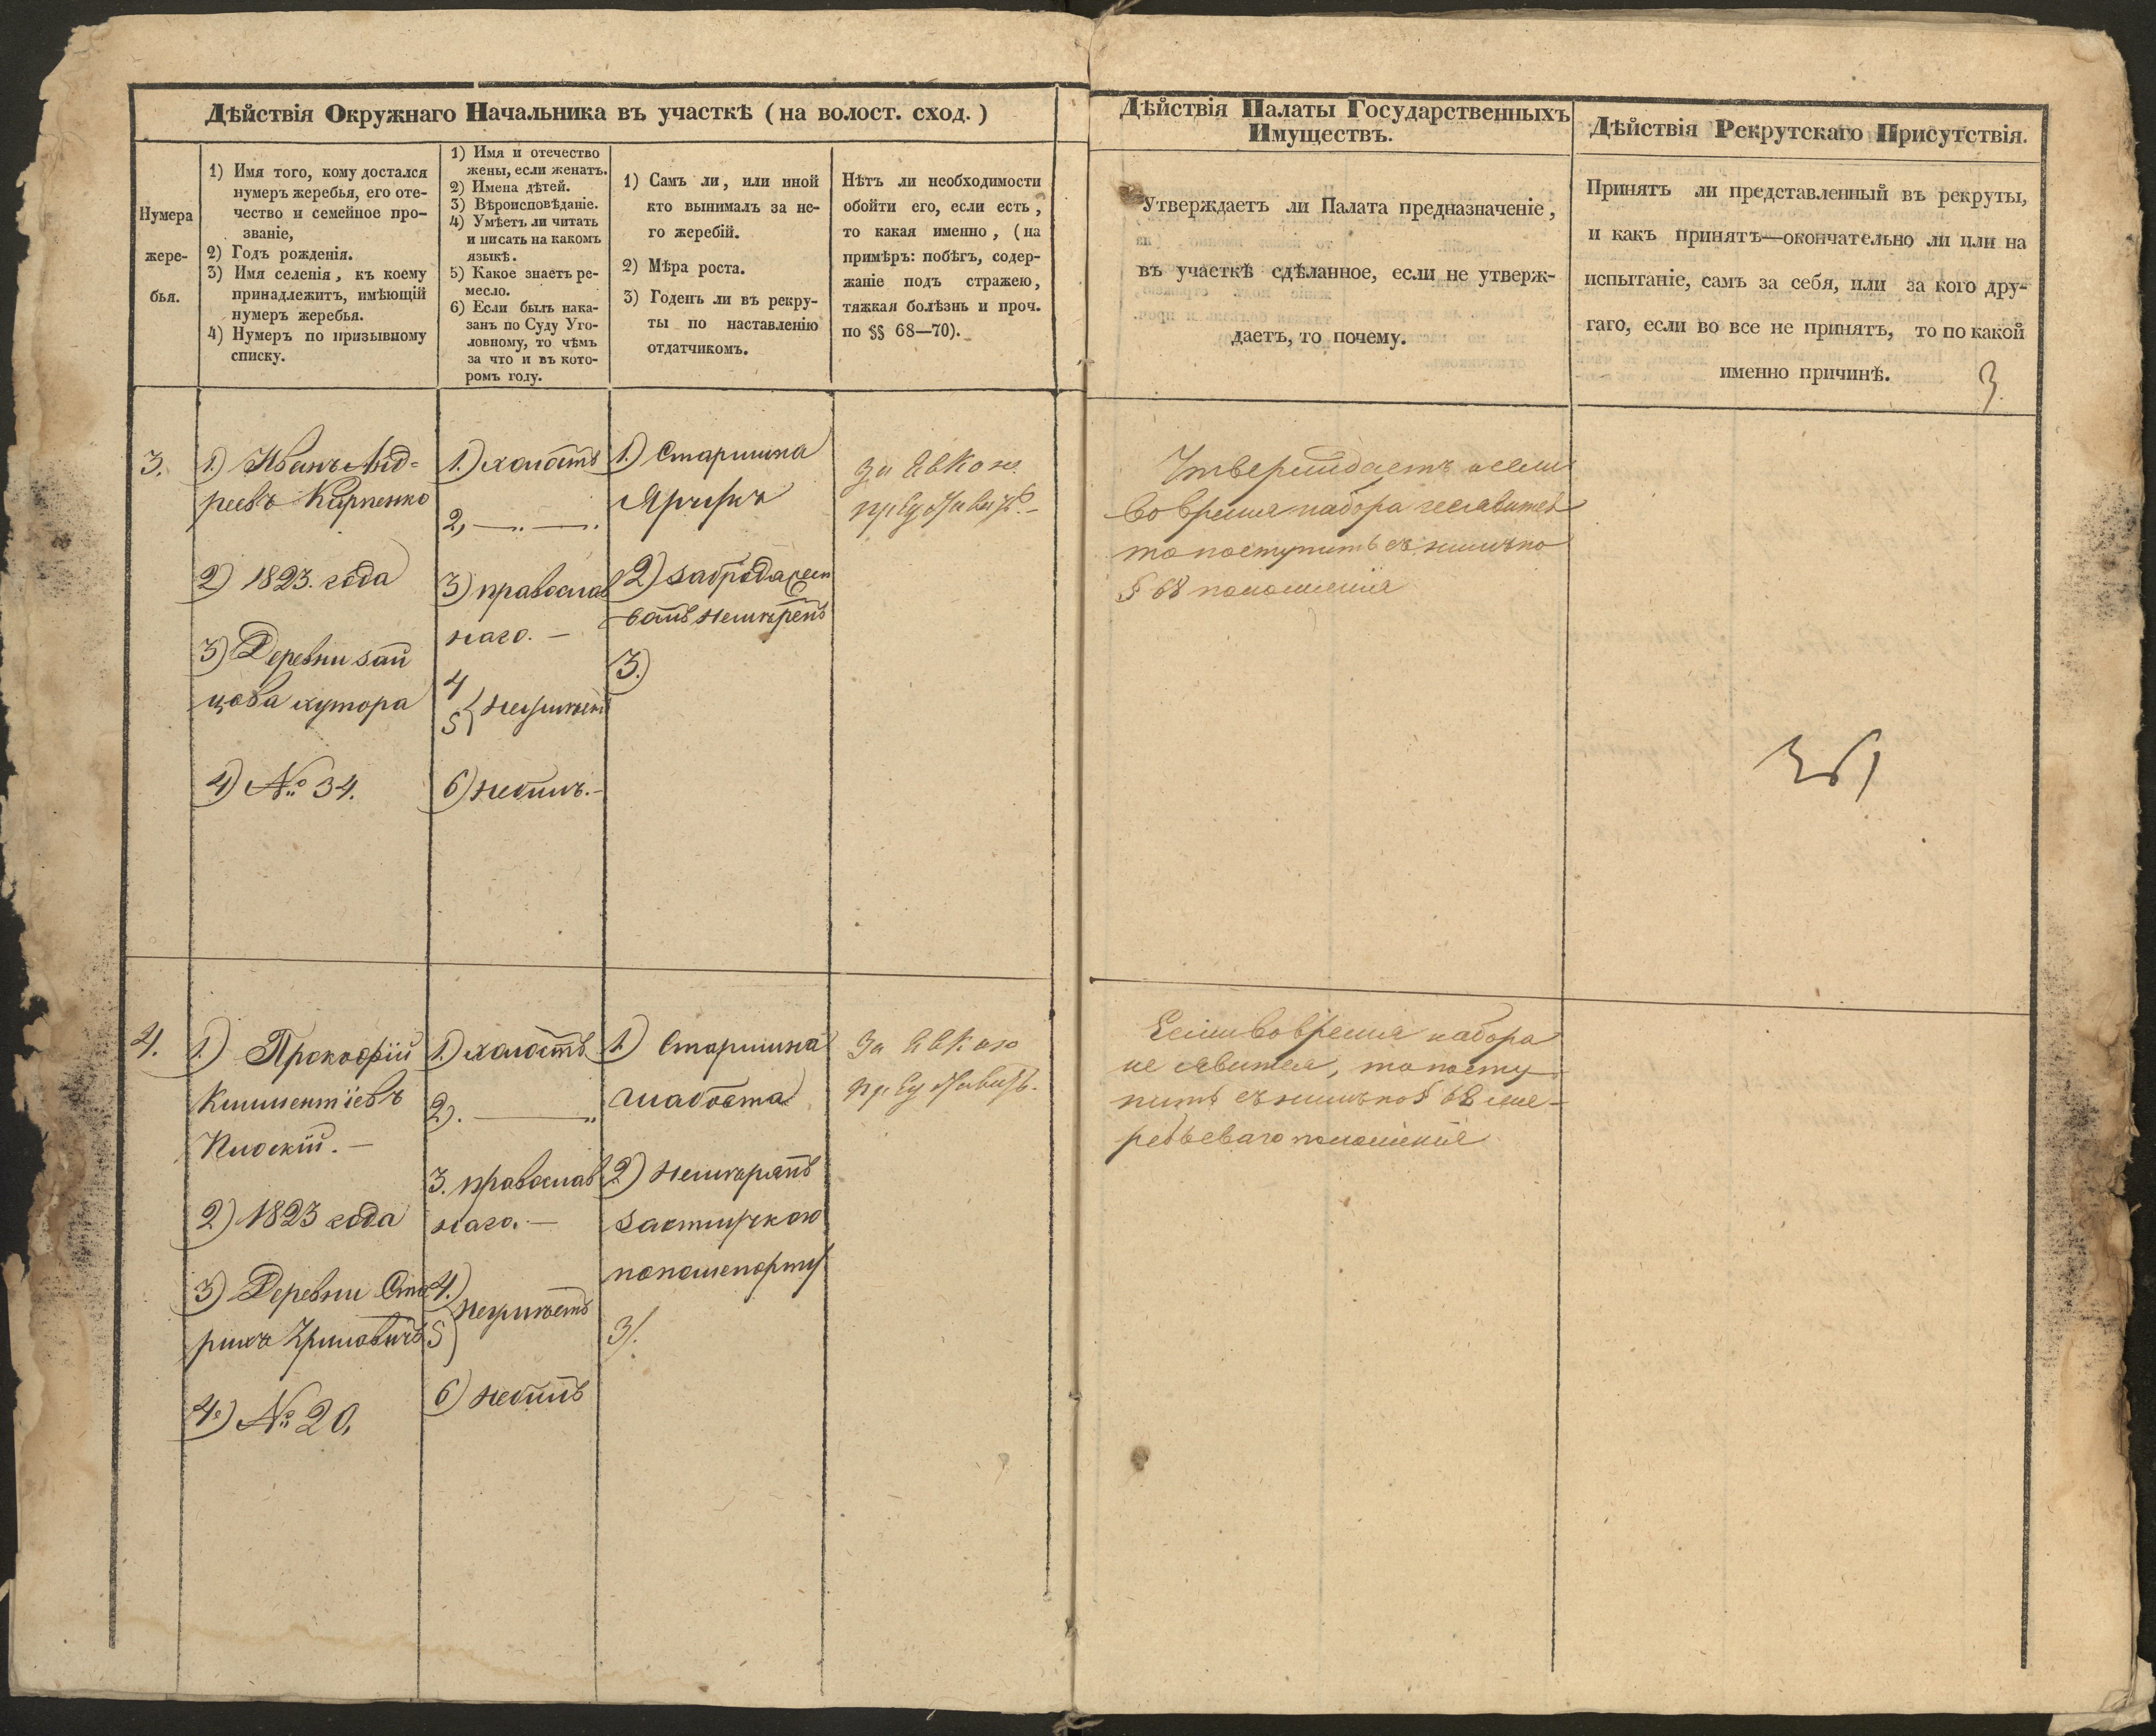 Дѣйствія Окружнаго Начальника въ участкѣ (на волост. сход.)
Нумера
жере-
бья.
1) Имя того, кому достался
нумеръ жеребья, его оте-
чество и семейное про-
званіе,
2) Годъ рожденія.
3) Имя селенія, къ коему
принадлежитъ, имѣющій
нумеръ жеребья.
4) Нумеръ по призывному
списку.
1) Имя и отечество
жены, если женатъ.
2) Имена дѣтей.
3) Вѣроисповѣданіе.
4) Умѣетъ ли читать
и писать на какомъ
языкѣ.
5) Какое знаетъ ре-
месло.
6) Если былъ нака-
занъ по Суду Уго-
ловному, то чѣмъ
за что и въ кото-
ромъ году.
1) Самъ ли, или иной
кто вынималъ за не-
го жеребій.
2) Мѣра роста.
3) Годенъ ли въ рекру-
ты по наставленію
отдатчикомъ.
Нѣтъ ли необходимости
обойти его, если есть,
то какая именно, (на
примѣръ: побѣгъ, содер-
жаніе подъ стражею,
тяжкая болѣзнь и проч.
по §§ 68—70).
Дѣйствія Палаты Государственныхъ
Имуществъ.
Утверждаетъ ли Палата предназначеніе,
въ участкѣ сдѣланное, если не утверж-
даетъ, то почему.
Дѣйствія Рекрутскаго Присутствія.
Принятъ ли представленный въ рекруты,
и какъ принятъ—окончательно ли или на
испытаніе, самъ за себя, или за кого дру-
гаго, если во все не принятъ, то по какой
именно причинѣ.
3
3.
1) Иванъ Анд=
реевъ Карпенко
2) 1823. года
3) Деревни Зай
цова хутора
4) №. 34.
1.) холостъ
2,
3) православ
наго. —
4
5 } неумѣетъ
6) небылъ.-
1.) Старшина
2)
3.)
за явкою
Утверждаетъ а если
во время набора неявится
то поступить съ нимъ по
§ 68 положенія
4.
1.) Прокофій
Климентіевъ
2) 1823 года
3) Деревни Ста
рыхъ
4.) №. 20.
1.) холостъ
2).
3. православ
наго. —
4.)
5 } неумѣетъ
6) небылъ
1.) Старшина
2)
3).
за явкою
Если во время набора
не явится, то посту-
пить съ нимъ по § 68 же-
ребьеваго положенія